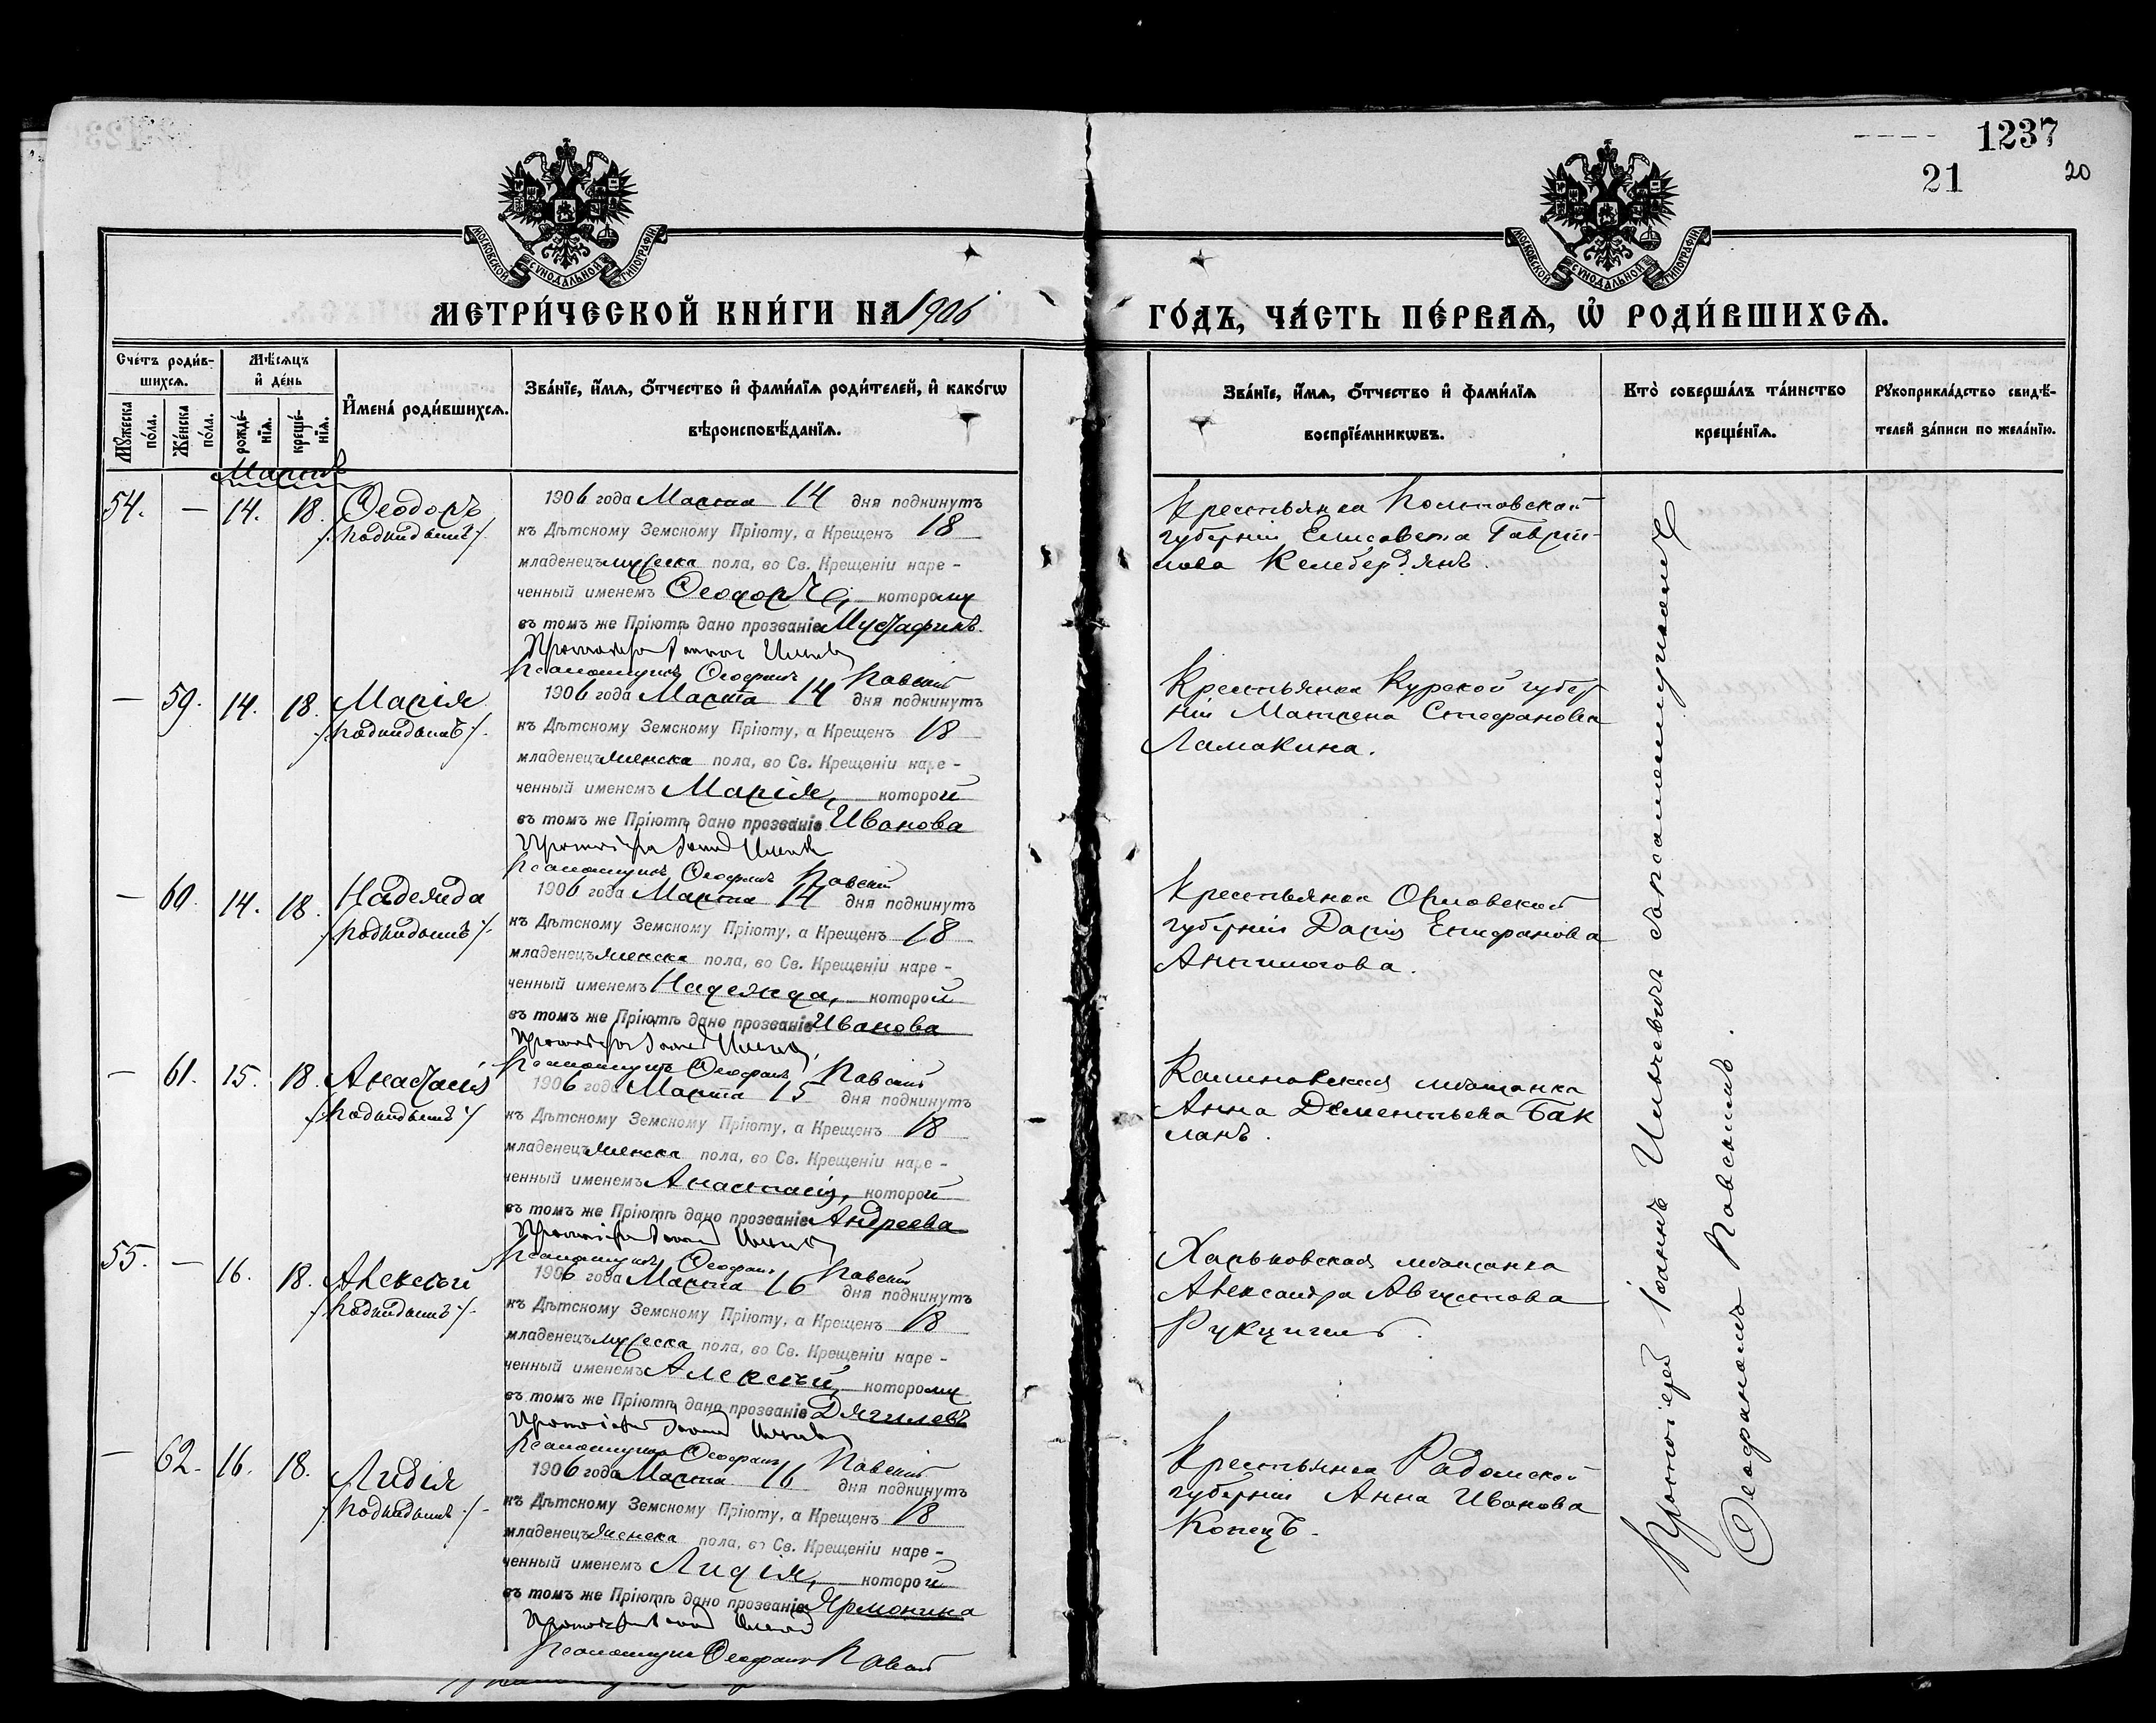 1237
21
20
МОСКОВСКОЙ СѴНОДАЛЬНОЙ ТИПОГРАФІИ
МОСКОВСКОЙ СѴНОДАЛЬНОЙ ТИПОГРАФІИ
МЕТРИ́ЧЕСКОЙ КНИ́ГИ НА 1906
ГО́ДЪ, ЧА́СТЬ ПЕ́РВАѦ, Ѡ҆ РОДИ́ВШИХСѦ.
Сче́тъ роди́в-
шихсѧ.
Мѣ́сѧцъ
и҆ де́нь
Мꙋ́жеска
по́ла.
Же́нска
по́ла.
рожде́-
нїѧ.
креще́-
нїѧ.
И҆мена̀ роди́вшихсѧ.
Зва́нїе, и҆́мѧ, ѻ҆́тчество и҆ фами́лїѧ роди́телей, и҆ како́гѡ
вѣроисповѣ́данїѧ.
Зва́нїе, и҆́мѧ, ѻ҆́тчество и҆ фами́лїѧ
воспрїе́мникѡвъ.
Кто̀ соверша́лъ та́инство
креще́нїѧ.
Рꙋкоприкла́дство свидѣ́-
телей за́писи по жела́нїю.
Мартъ
54. — 14. 18. Ѳеодоръ
/подкидышъ/
1906 года Марта 14 дня подкинутъ
къ Дѣтскому Земскому Пріюту, а Крещенъ 18
младенецъ мужеска пола, во Св. Крещеніи наре-
ченный именемъ Ѳеодоръ, которому
въ томъ же Пріютѣ дано прозваніе Мустафинъ.
Протоіерей Іоаннъ
Псаломщикъ Ѳеофанъ Павскій
Крестьянка Полтавской
губерніи Елисавета Гаврі-
лова Келебердянъ.
— 59. 14. 18. Марія
/подкидышъ/.
1906 года Марта 14 дня подкинутъ
къ Дѣтскому Земскому Пріюту, а Крещенъ 18
младенецъ женска пола, во Св. Крещеніи наре-
ченный именемъ Марія, которой
въ томъ же Пріютѣ дано прозваніе Иванова
Протоіерей Іоаннъ
Псаломщикъ Ѳеофанъ Павскій
Крестьянка Курской губер
ніи Матрена Стефанова
Ламакина.
— 60. 14. 18. Надежда
/подкидышъ/.
1906 года Марта 14 дня подкинутъ
къ Дѣтскому Земскому Пріюту, а Крещенъ 18
младенецъ женска пола, во Св. Крещеніи наре-
ченный именемъ Надежда, которой
въ томъ же Пріютѣ дано прозваніе Иванова
Протоіерей Іоаннъ
Псаломщикъ Ѳеофанъ Павскій
Крестьянка Орловской
губерніи Дарія Епифанова
— 61. 15. 18. Анастасія
/подкидышъ/
1906 года Марта 15 дня подкинутъ
къ Дѣтскому Земскому Пріюту, а Крещенъ 18
младенецъ женска пола, во Св. Крещеніи наре-
ченный именемъ Анастасія, которой
въ томъ же Пріютѣ дано прозваніе Андреева
Протоіерей Іоаннъ
Псаломщикъ Ѳеофанъ Павскій
мѣщанка
Анна Дементьева Бак
ланъ.
55. — 16. 18. Алексѣй
/подкидышъ/.
1906 года Марта 16 дня подкинутъ
къ Дѣтскому Земскому Пріюту, а Крещенъ 18
младенецъ мужеска пола, во Св. Крещеніи наре-
ченный именемъ Алексѣй, которому
въ томъ же Пріютѣ дано прозваніе Дягилевъ
Протоіерей Іоаннъ
Псаломщикъ Ѳеофанъ Павскій
Харьковская мѣщанка
Александра Августова
— 62. 16. 18. Лидія
/подкидышъ/.
1906 года Марта 16 дня подкинутъ
къ Дѣтскому Земскому Пріюту, а Крещенъ 18
младенецъ женска пола, во Св. Крещеніи наре-
ченный именемъ Лидія, которой
въ томъ же Пріютѣ дано прозваніе Ярмонина
Протоіерей Іоаннъ
Псаломщикъ Ѳеофанъ Павскій
Крестьянка Радомской
губерніи Анна Иванова
Конецъ.
Протоіерей Іоаннъ Ильичевъ съ псаломщикомъ
Ѳеофаномъ Павскимъ.